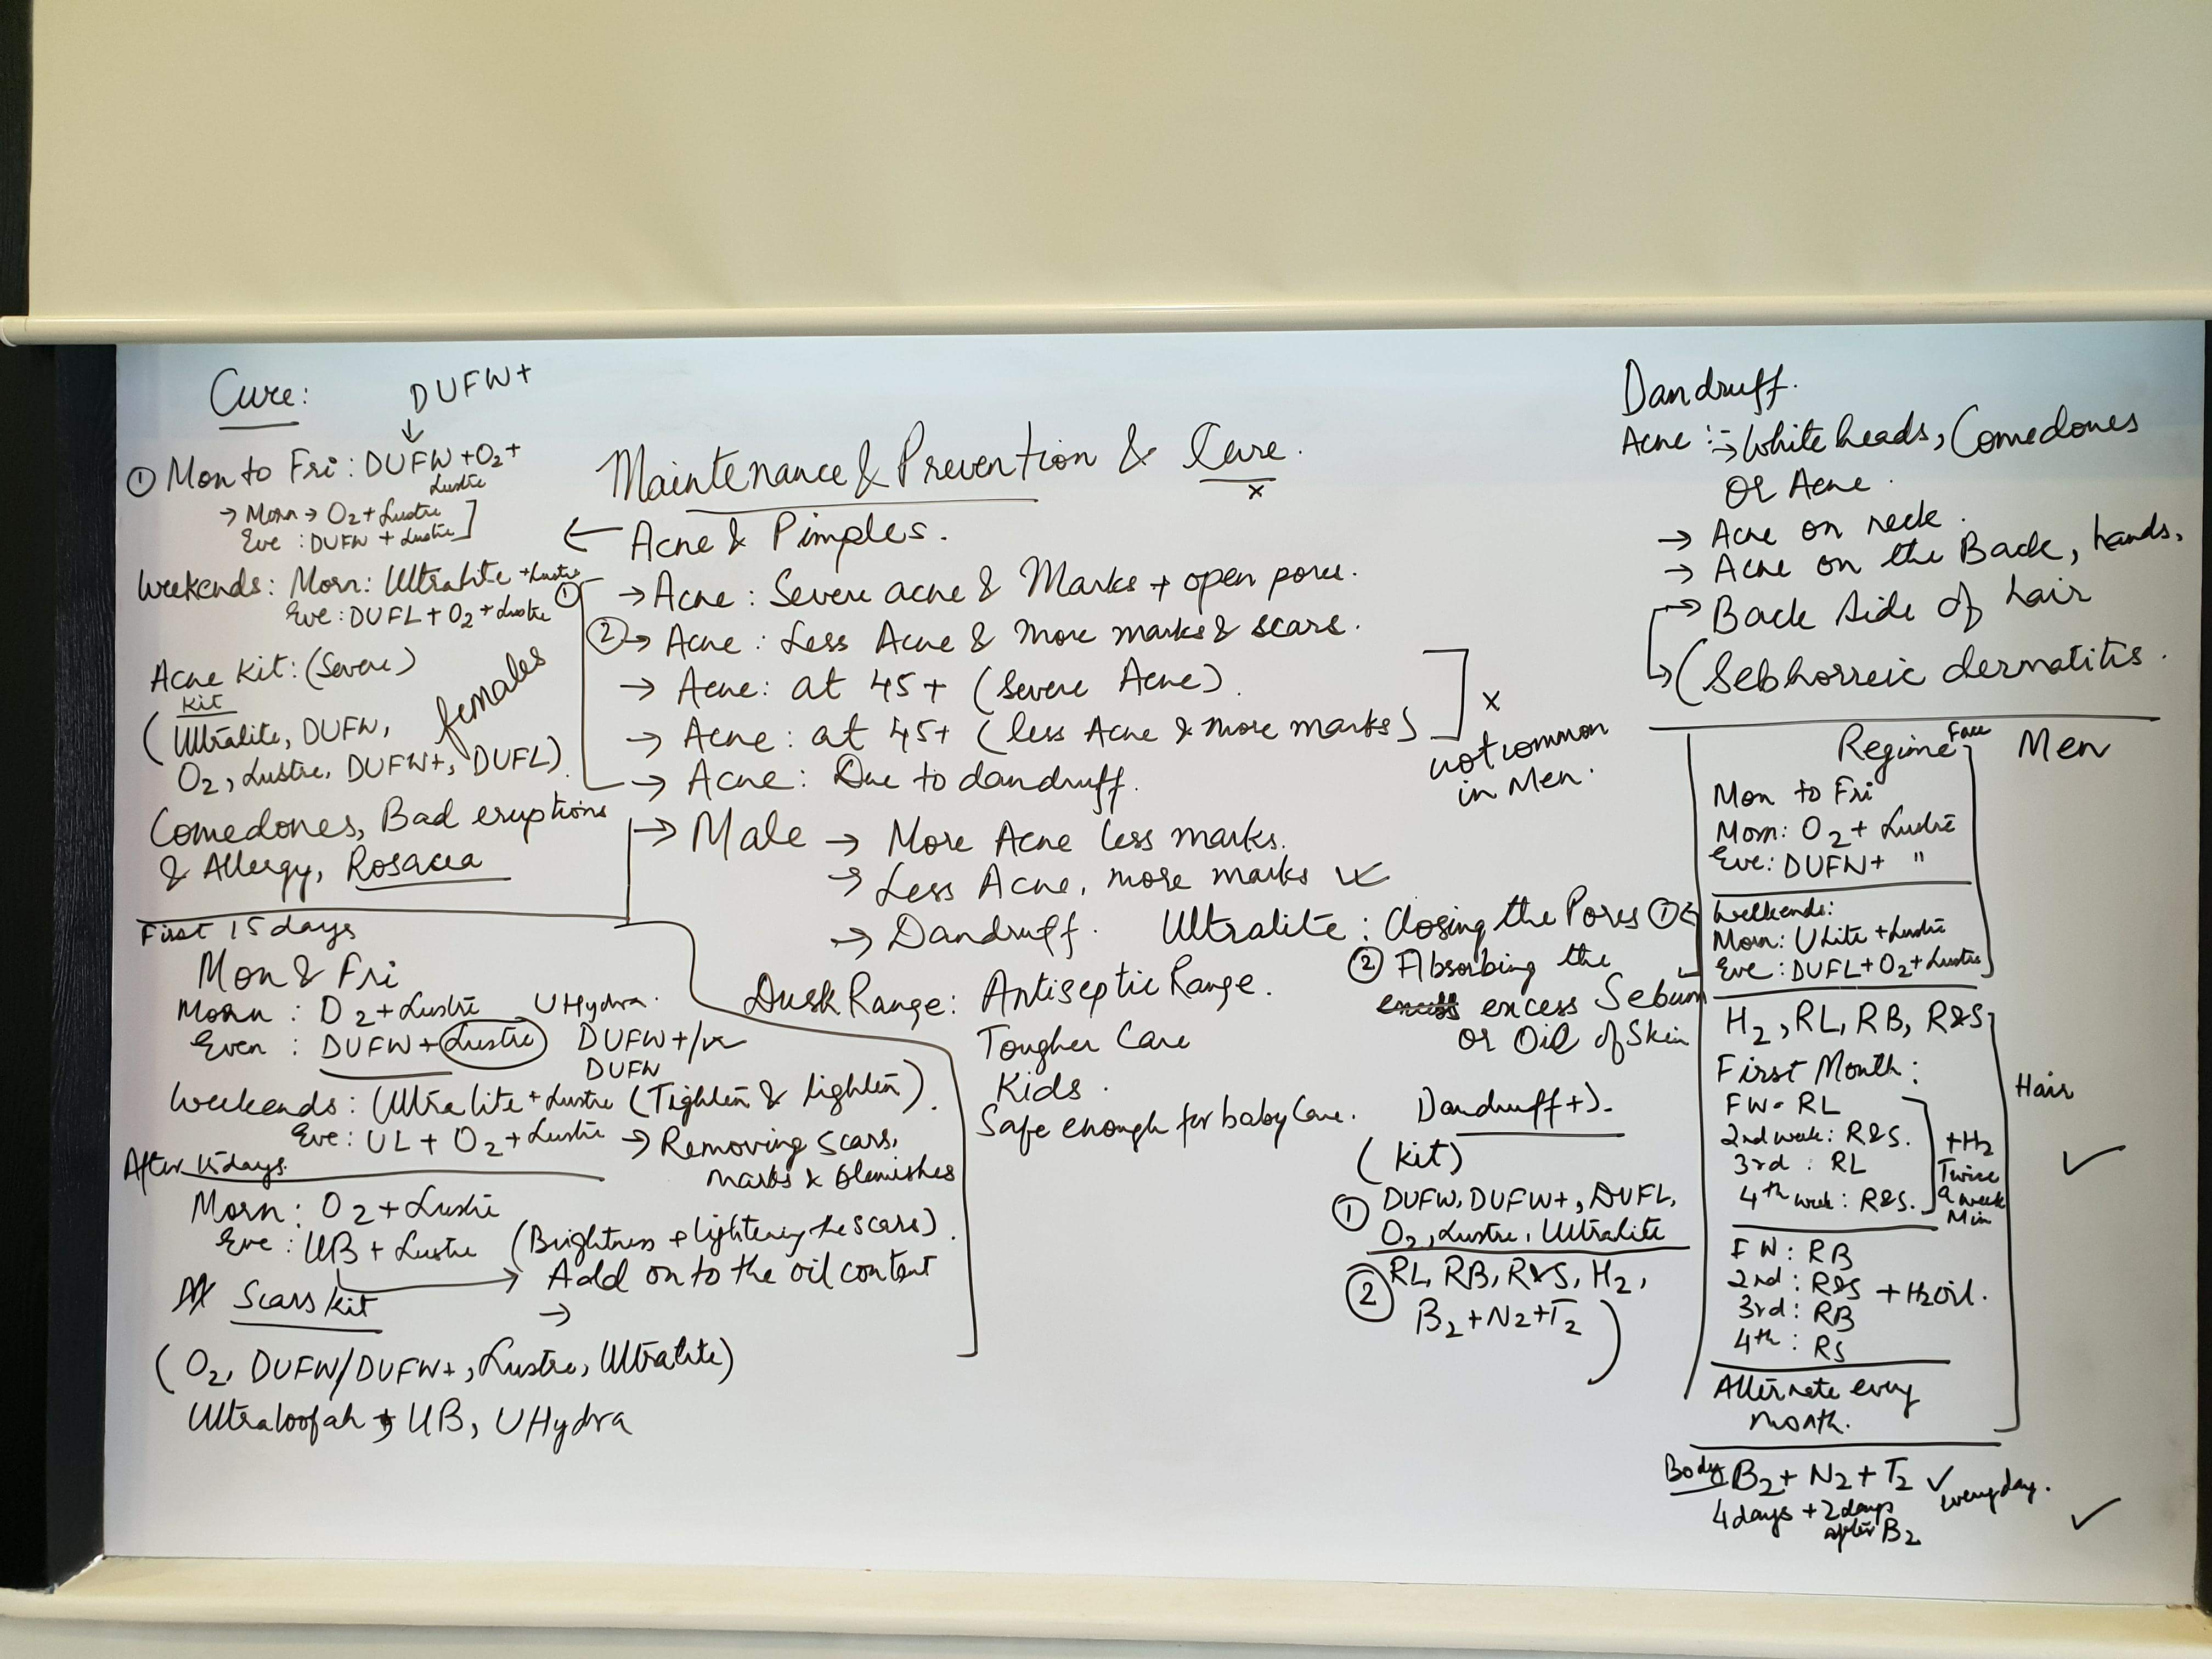 Cure:
DUFW+
↓
① Mon to Fri : DUFW + O2 +
Lustre
→ Morn → O2 + Lustre
Eve : DUFW + Lustre
Weekends: Morn: Ultralite + Lustre
Eve: DUFL + O2 + Lustre
Acne Kit: (Severe)
Kit
females
(Ultralite, DUFW,
O2, Lustre, DUFW+, DUFL).
Comedones, Bad eruptions
& Allergy, Rosacea
First 15 days
Mon & Fri
Morn : O2 + Lustre UHydra.
Even : DUFW + Lustre DUFW+/or
DUFW
Weekends: Ultralite + Lustre (Tighten & lighten).
Eve: UL + O2 + Lustre → Removing scars,
marks & blemishes
After 15 days.
Morn: O2 + Lustre
Eve : UB + Lustre (Brightness + lightening the scars).
→ Add on to the oil content
→
Scars Kit
(O2, DUFW/DUFW+, Lustre, Ultralite)
Ultraloofah → UB, UHydra
Maintenance & Prevention & Cure.
x
← Acne & Pimples.
① → Acne : Severe acne & Marks + open pores.
② → Acne : Less Acne & More marks & scars.
→ Acne: at 45+ (Severe Acne).
→ Acne: at 45+ (less Acne & more marks)
x
not common
in Men.
→ Acne : Due to dandruff.
→ Male → More Acne less marks.
→ Less Acne, more marks
→ Dandruff.
Ultralite : Closing the Pores ①
② Absorbing the
excess excess Sebum
or Oil of Skin
Dusk Range: Antiseptic Range.
Tougher Care
Kids.
Safe enough for baby Care.
Dandruff +).
(Kit)
① DUFW, DUFW+, DUFL,
O2, Lustre, Ultralite
② RL, RB, R&S, H2,
B2 + N2 + T2 )
Dandruff.
Acne :→ White heads, Comedones
or Acne.
→ Acne on neck.
→ Acne on the Back, hands,
→ Back side of hair
↳ (Sebhorreic dermatitis.
Regime Face Men
Mon to Fri
Morn: O2 + Lustre
Eve: DUFW+ "
Weekends:
Morn: ULite + Lustre
Eve : DUFL + O2 + Lustre
H2, RL, RB, R&S
First Month :
FW - RL
2nd week: R&S.
3rd : RL
4th week : R&S.
+H2
Twice
a week
Min
Hair
FW : RB
2nd : R&S + H2 oil.
3rd : RB
4th : RS
Alternate every
month.
Body B2 + N2 + T2 ✓ everyday.
4 days + 2 days
after B2